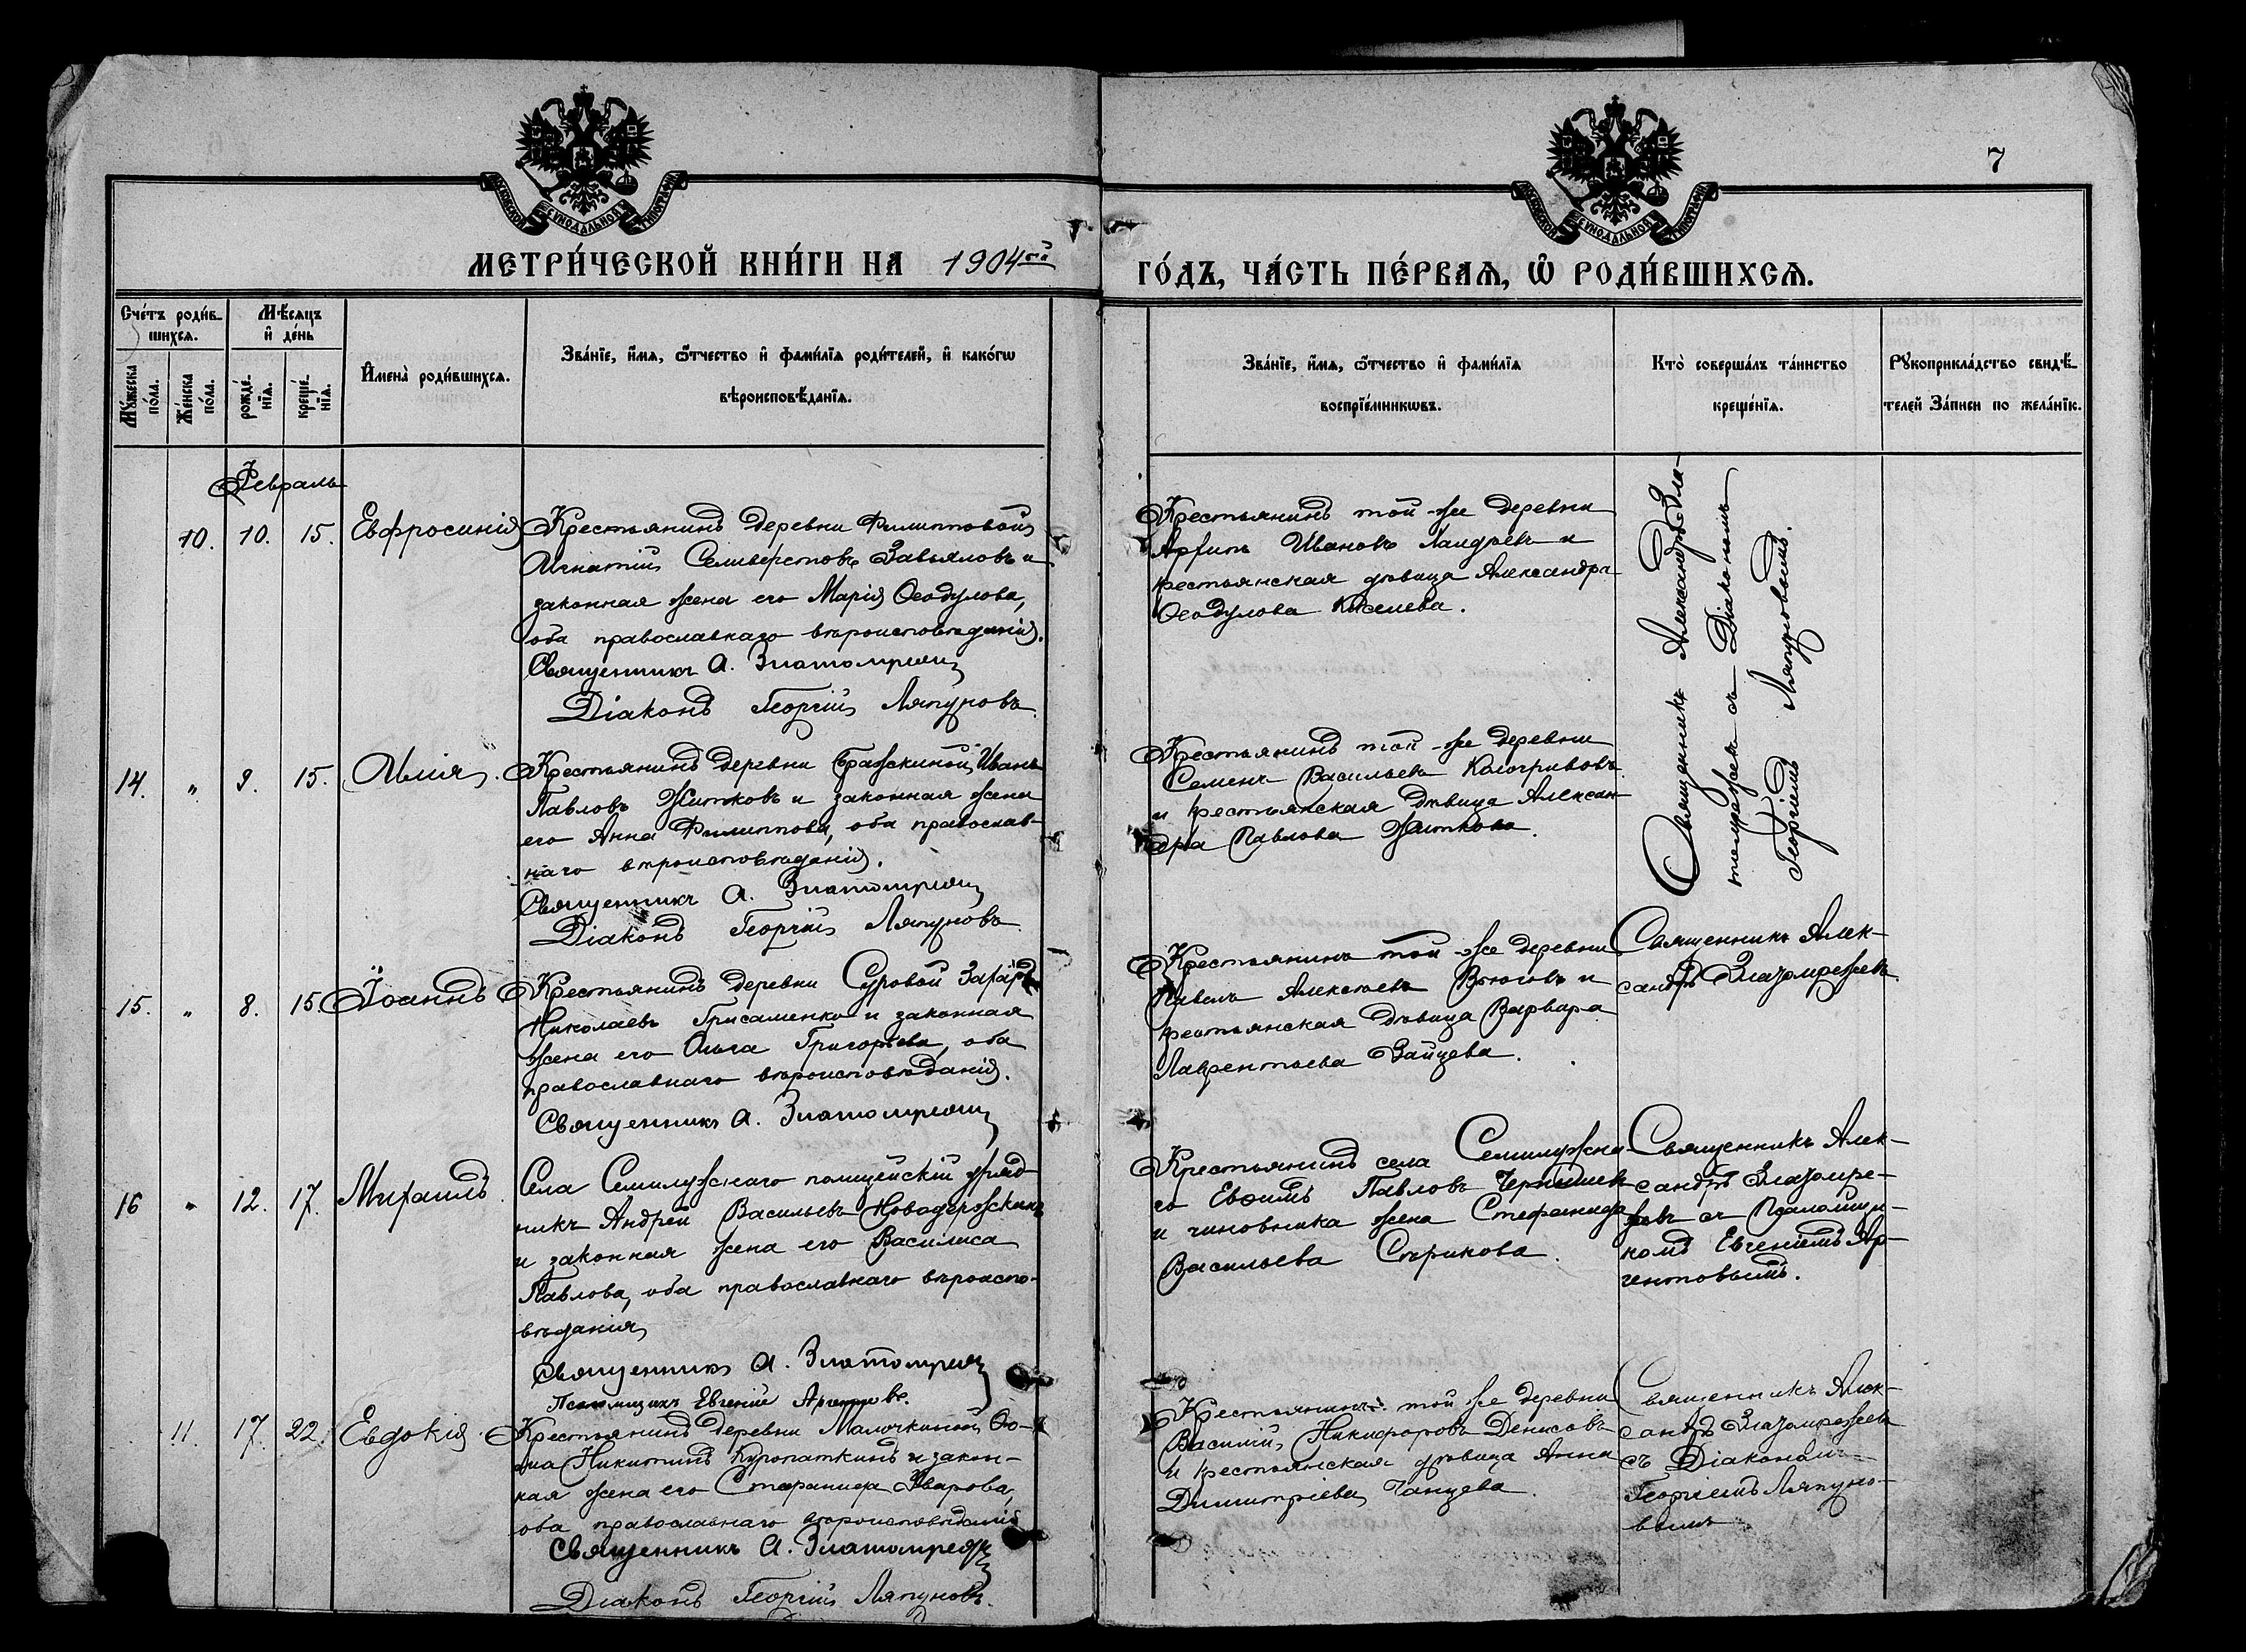 7
МОСКОВСКОЙ СѴНОДАЛЬНОЙ ТИПОГРАФІИ
МОСКОВСКОЙ СѴНОДАЛЬНОЙ ТИПОГРАФІИ
МЕТРИ́ЧЕСКОЙ КНИ́ГИ НА 1904ый
ГО́ДЪ, ЧА́СТЬ ПЕ́РВАѦ, Ѡ РОДИ́ВШИХСѦ.
Сче́тъ роди́в-
шихсѧ.
Мѣ́сяцъ
и де́нь
Мꙋ́жеска по́ла.
Же́нска по́ла.
рожде́-
нїѧ.
креще́-
нїѧ.
И҆мена̀ роди́вшихсѧ.
Зва́нїе, и҆́мѧ, ѻ҆́тчество и҆ фами́лїѧ роди́телей, и҆ како́гѡ
вѣроисповѣ́данїѧ.
Зва́нїе, и҆́мѧ, ѻ҆́тчество и҆ фами́лїѧ
воспрїе́мникѡвъ.
Кто̀ соверша́лъ та́инство
креще́нїѧ.
Рꙋкоприкла́дство свидѣ́-
телей За́писи по жела́нїю.
Февраль
10. 10. 15. Евфросинія
Крестьянинъ деревни Филипповой
Игнатій Селиверстовъ Завьяловъ и
законная жена его Марія Ѳеодулова,
оба православнаго вѣроисповѣданія.
Священникъ А.
Діаконъ Георгій Ляпуновъ.
Крестьянинъ той-же деревни
Ивановъ и
крестьянская дѣвица Александра
Ѳеодулова Киселева.
Священникъ Александръ Зла-
томрежевъ съ Діакономъ
Георгіемъ Ляпуновымъ.
14. " 9. 15. Илія.
Крестьянинъ деревни Бражкиной Иванъ
Павловъ Житковъ и законная жена
его Анна Филиппова, оба православ-
наго вѣроисповѣданія.
Священникъ А.
Діаконъ Георгій Ляпуновъ
Крестьянинъ той-же деревни
Семенъ Васильевъ Кологривовъ
и крестьянская дѣвица Алексан-
дра Павлова Житкова.
15. " 8. 15. Іоаннъ
Крестьянинъ деревни Суровой
Николаевъ Грисаменко и законная
жена его Ольга Григорьева, оба
православнаго вѣроисповѣданія.
Священникъ А.
Крестьянинъ той-же деревни
Павелъ Алексѣевъ Вьюговъ и
крестьянская дѣвица Варвара
Лаврентьева Зайцева.
Священникъ Алек-
сандръ Златомрежевъ.
16 " 12. 17. Михаилъ
Села Семилужнаго полицейскій уряд-
никъ Андрей Васильевъ
и законная жена его Василиса
Павлова, оба православнаго вѣроиспо-
вѣданія
Священникъ А.
Псаломщикъ Евгеній Аргентовъ.
Крестьянинъ села Семилужна-
го Евѳимъ Павловъ Чернышевъ
и чиновника жена Стефанида
Васильева Стрикова.
Священникъ Алек-
сандръ Златомре-
жевъ съ Псаломщи-
комъ Евгеніемъ Ар-
гентовымъ.
11. 17. 22. Евдокія.
Крестьянинъ деревни Малочкиной Ѳо-
ма Никитинъ Куропаткинъ и закон-
ная жена его Стефанида Уварова,
оба православнаго вѣроисповѣданія
Священникъ А.
Діаконъ Георгій Ляпуновъ.
Крестьянинъ той же деревни
Василій Никифоровъ Денисовъ
и крестьянская дѣвица Анна
Димитріева Чанцева.
Священникъ Алек-
сандръ Златомрежевъ
съ Діакономъ
Георгіемъ Ляпуно-
вымъ